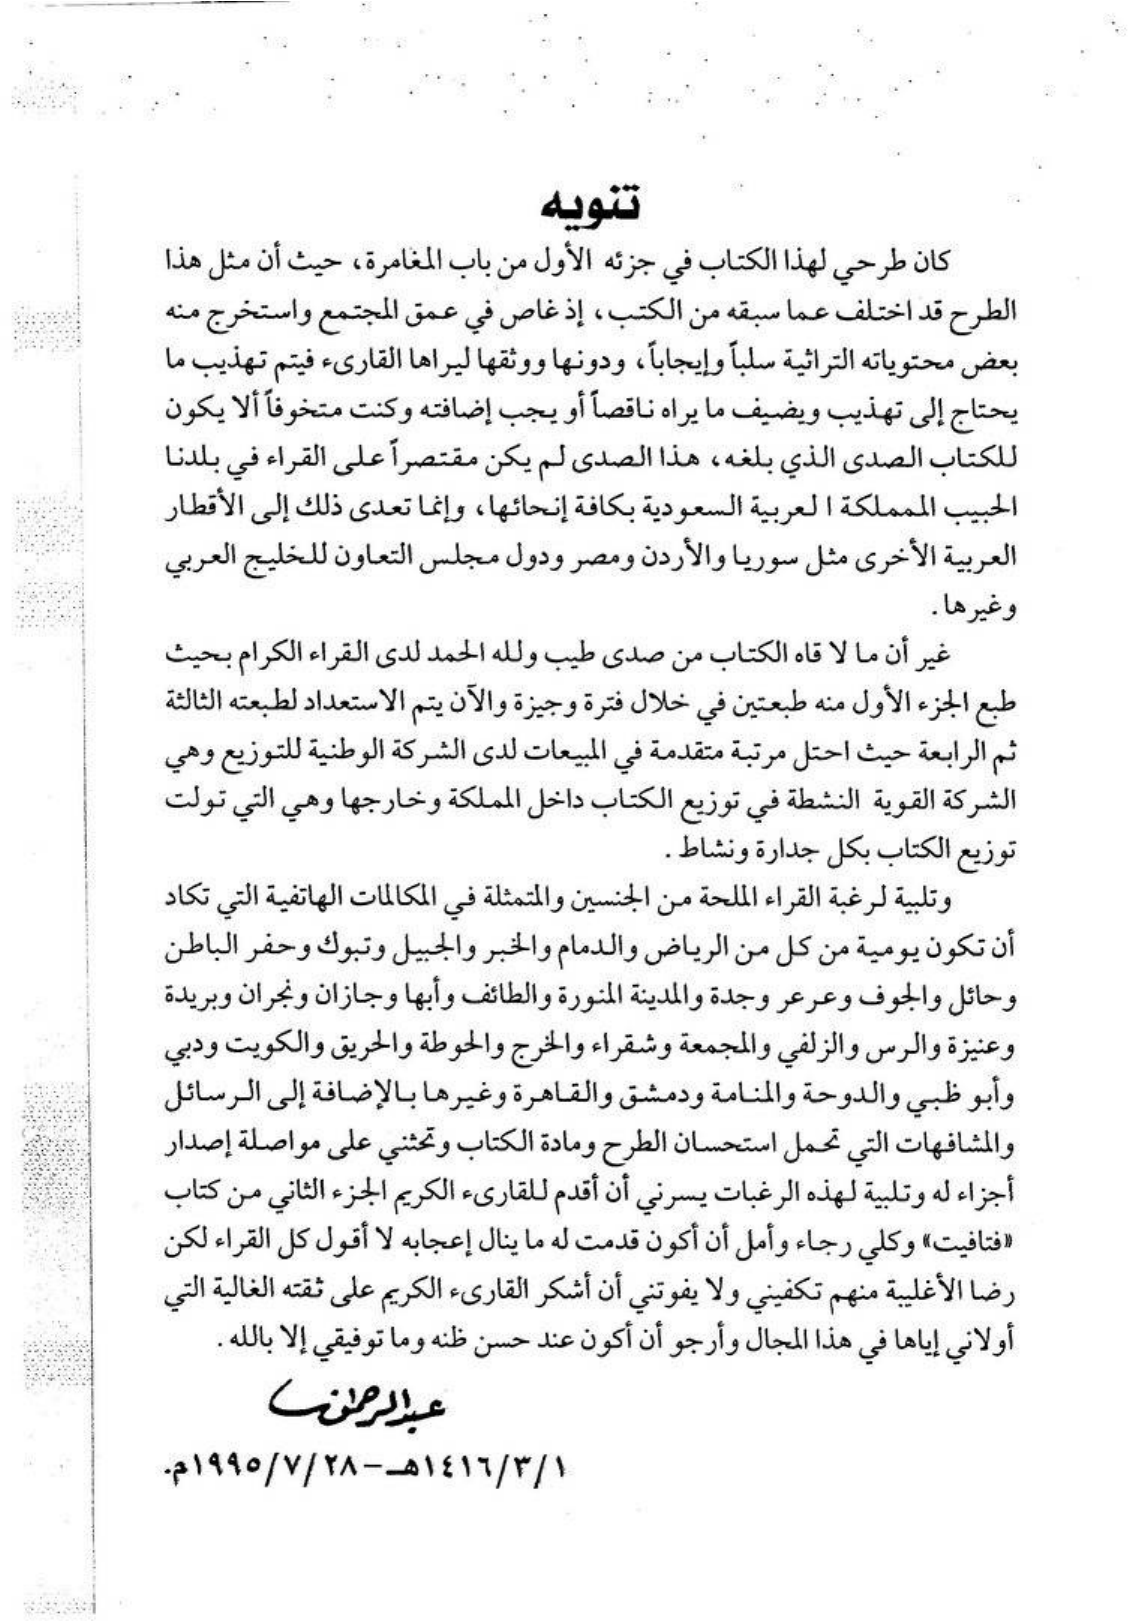 تنويه
كان طرحي لهذا الكتاب في جزئه الأول من باب المغامرة، حيث أن مثل هذا
الطرح قد اختلف عما سبقه من الكتب، إذ غاص في عمق المجتمع واستخرج منه
بعض محتوياته التراثية سلباً وإيجاباً، ودونها ووثقها ليراها القارىء فيتم تهذيب ما
يحتاج إلى تهذيب ويضيف ما يراه ناقصاً أو يجب إضافته وكنت متخوفاً ألا يكون
للكتاب الصدى الذي بلغه، هذا الصدى لم يكن مقتصراً على القراء في بلدنا
الحبيب المملكة العربية السعودية بكافة إنحائها، وإنما تعدى ذلك إلى الأقطار
العربية الأخرى مثل سوريا والأردن ومصر ودول مجلس التعاون للخليج العربي
وغيرها.
غير أن ما لا قاه الكتاب من صدى طيب ولله الحمد لدى القراء الكرام بحيث
طبع الجزء الأول منه طبعتين في خلال فترة وجيزة والآن يتم الاستعداد لطبعته الثالثة
ثم الرابعة حيث احتل مرتبة متقدمة في المبيعات لدى الشركة الوطنية للتوزيع وهي
الشركة القوية النشطة في توزيع الكتاب داخل المملكة وخارجها وهي التي تولت
توزيع الكتاب بكل جدارة ونشاط.
وتلبية لرغبة القراء الملحة من الجنسين والمتمثلة في المكالمات الهاتفية التي تكاد
أن تكون يومية من كل من الرياض والدمام والخبر والجبيل وتبوك وحفر الباطن
وحائل والجوف وعرعر وجدة والمدينة المنورة والطائف وأبها وجازان ونجران وبريدة
وعنيزة والرس والزلفي والمجمعة وشقراء والخرج والحوطة والحريق والكويت ودبي
وأبو ظبي والدوحة والمنامة ودمشق والقاهرة وغيرها بالإضافة إلى الرسائل
والمشافهات التي تحمل استحسان الطرح ومادة الكتاب وتحثني على مواصلة إصدار
أجزاء له وتلبية لهذه الرغبات يسرني أن أقدم للقارىء الكريم الجزء الثاني من كتاب
«فتافيت» وكلي رجاء وأمل أن أكون قدمت له ما ينال إعجابه لا أقول كل القراء لكن
رضا الأغليبة منهم تكفيني ولا يفوتني أن أشكر القارىء الكريم على ثقته الغالية التي
أولاني إياها في هذا المجال وأرجو أن أكون عند حسن ظنه وما توفيقي إلا بالله.
عبدالرحمن
١٤١٦/٣/١هـ - ١٩٩٥/٧/٢٨م.